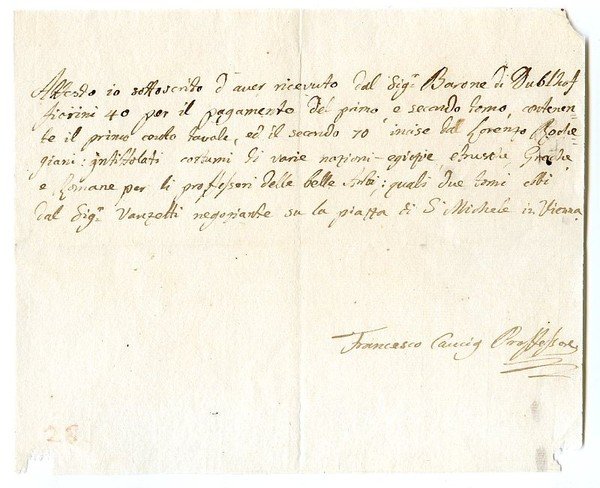 Attesto io sottoscrito d'aver ricevuto dal Sigr Barone di Dublhof
fiorini 40 per il pagamento del primo, e secondo tomo, contenen-
te il primo cento tavole, ed il secondo 70 incise dal Lorenzo Roche-
giani: intittolati costumi di varie nazioni egizie, etrusche Greche
e Romane per li professori delle belle Arti: quali due tomi ebbi
dal Sigr Vanzetti negoziante su la piazza di S. Michele in Vienna
Francesco Caucig Proffessore
28